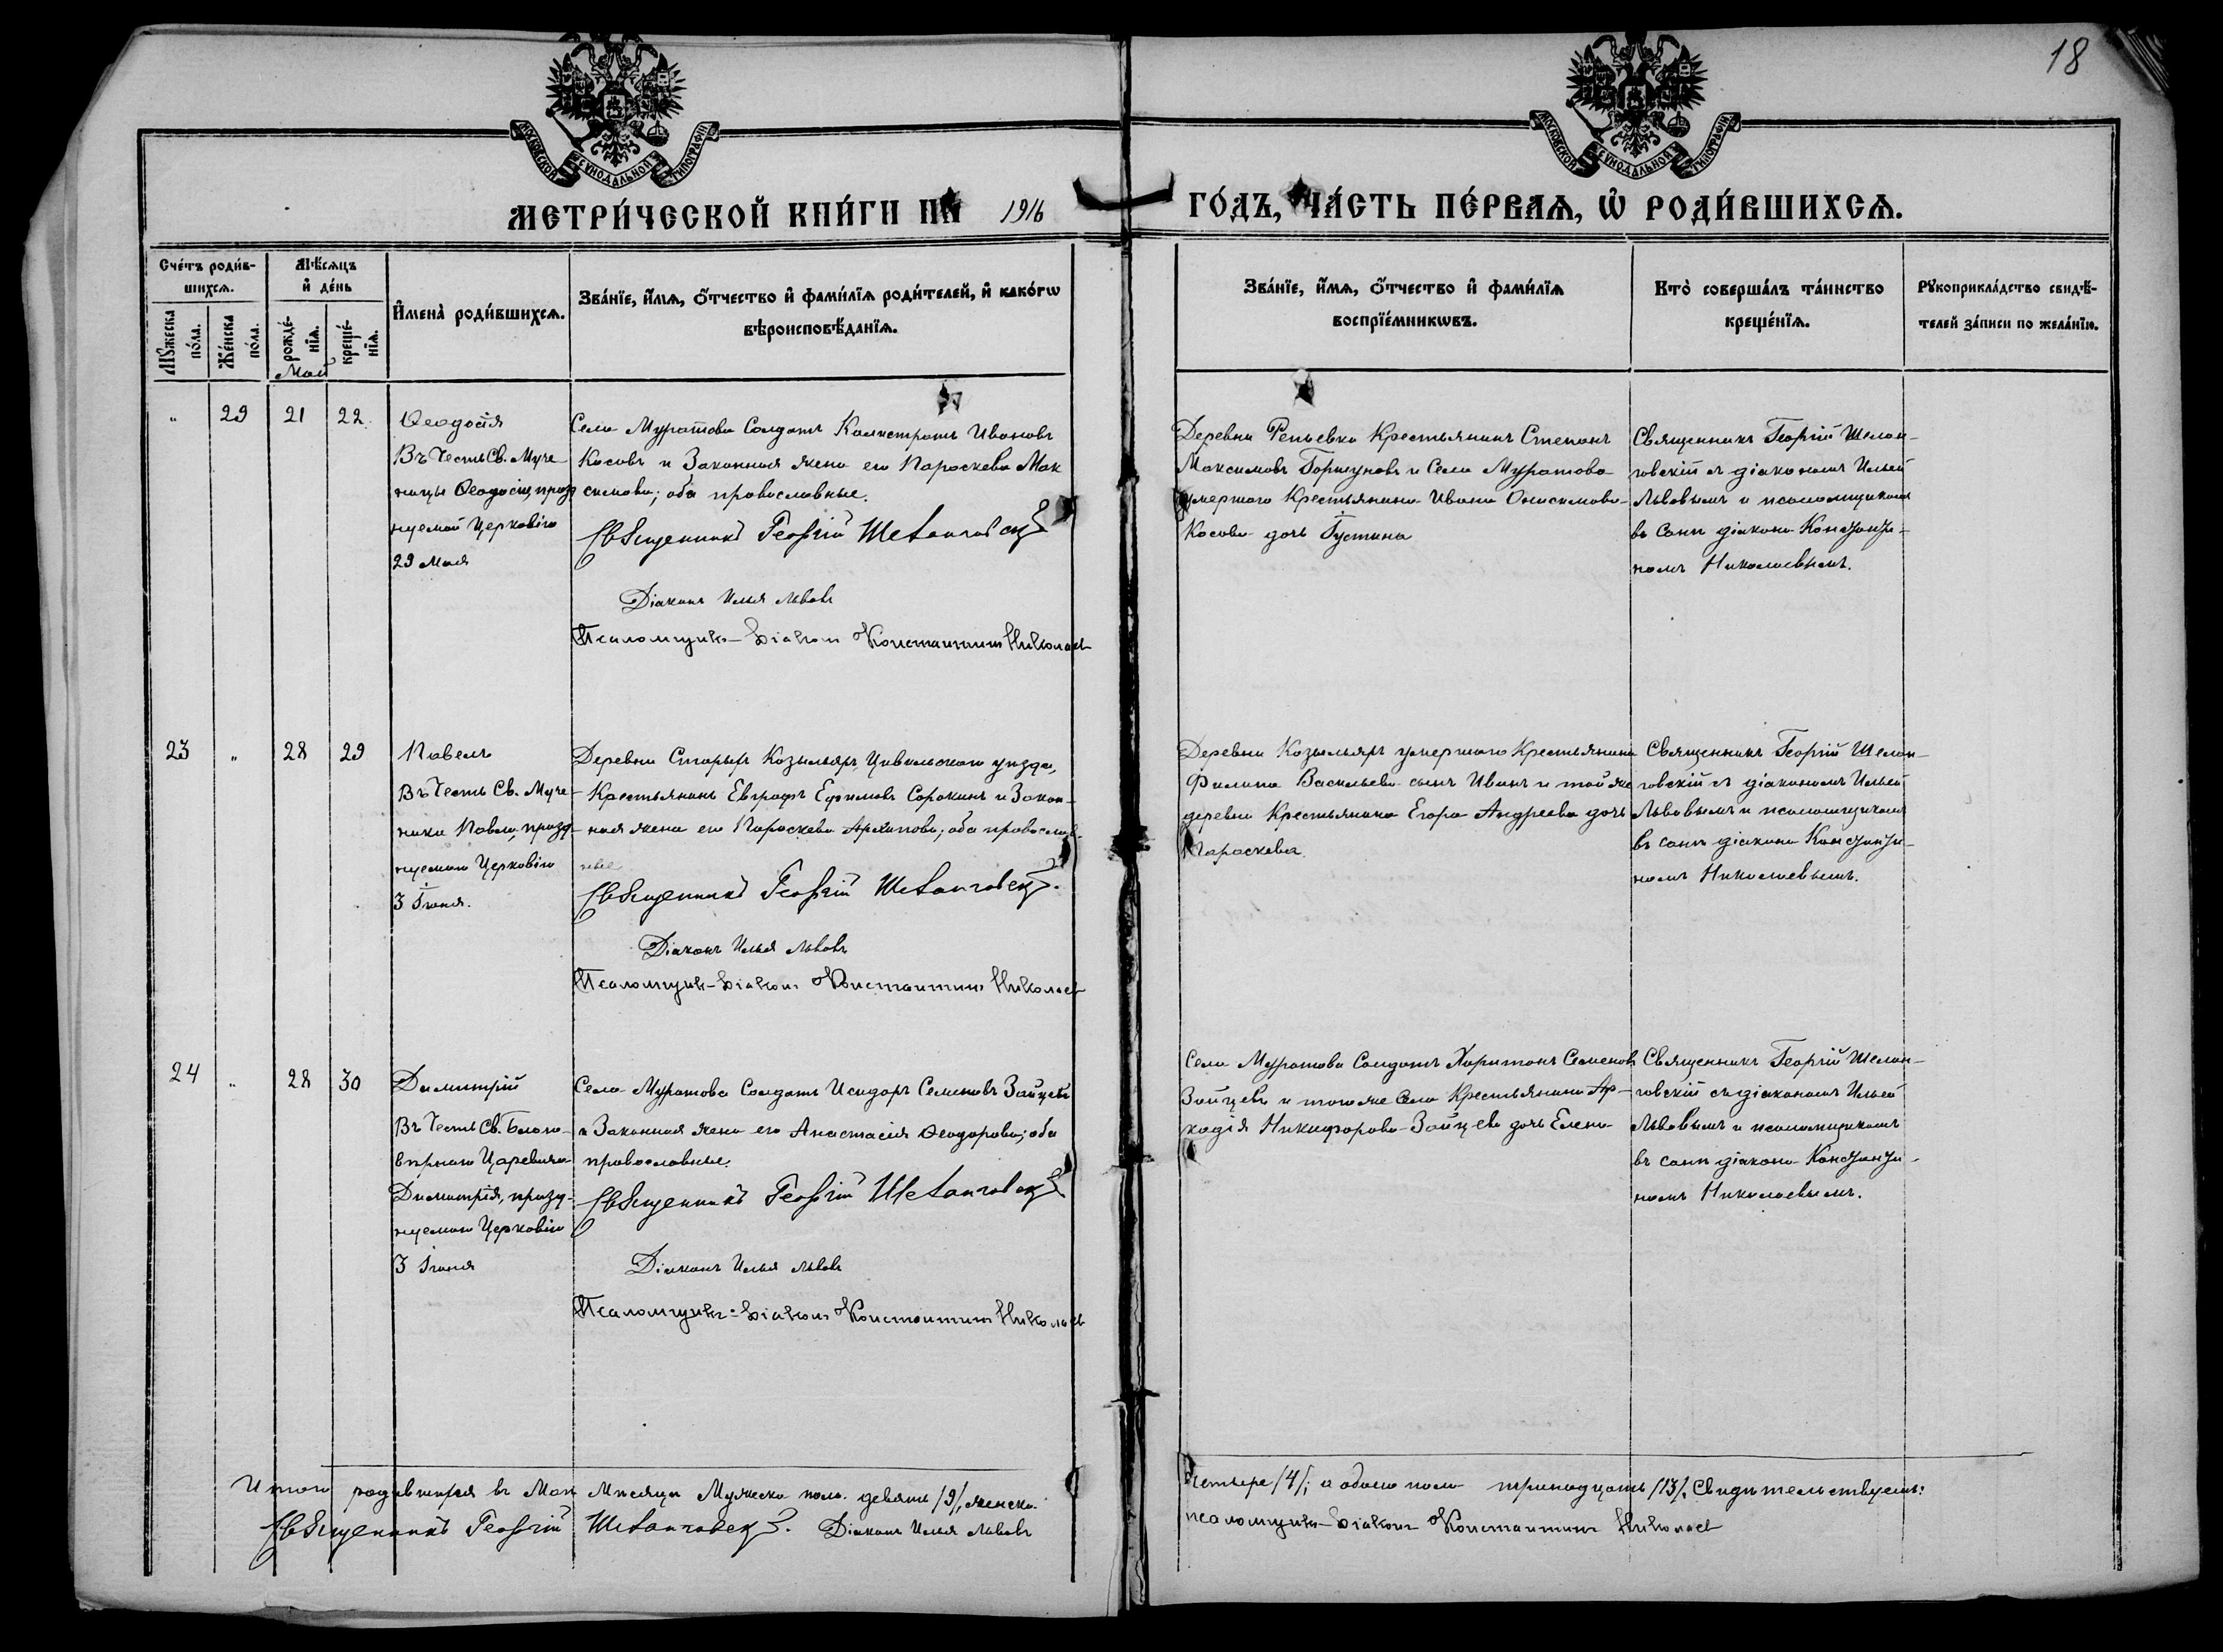 18
МОСКОВСКОЙ СѴНОДАЛЬНОЙ ТИПОГРАФІИ
МОСКОВСКОЙ СѴНОДАЛЬНОЙ ТИПОГРАФІИ
МЕТРИ́ЧЕСКОЙ КНИ́ГИ НА 1916 ГО́ДЪ, ЧА́СТЬ ПЕ́РВАѦ, Ѡ҆ РОДИ́ВШИХСѦ.
Сче́тъ роди́в-
шихсѧ.
Мꙋ́жеска
по́ла.
Же́нска
по́ла.
Мѣ́сѧцъ
и҆ де́нь
рожде́-
нїѧ.
креще́-
нїѧ.
Май
И҆мена̀ роди́вшихсѧ.
Зва́нїе, и҆́мѧ, ѻ҆́тчество и҆ фами́лїѧ роди́телей, и҆ како́гѡ
вѣроисповѣ́данїѧ.
Зва́нїе, и҆́мѧ, ѻ҆́тчество и҆ фами́лїѧ
воспрїе́мникѡвъ.
Кто̀ соверша́лъ та́инство
креще́нїѧ.
Рꙋкоприкла́дство свидѣ́-
телей за́писи по жела́нїю.
" 29 21 22
Ѳеодосія
Въ Честь Св. Муче-
ницы Ѳеодосіи, празд-
нуемой Церковію
29 Мая
Села Муратова Солдатъ Калистратъ Ивановъ
Косовъ и Законная жена его Параскева Мак
симова; оба православные.
Священникъ Георгій Шеланговскій
Діаконъ Илья Львовъ
Псаломщикъ-Діаконъ Константинъ Николаевъ
Деревни Репьевка Крестьянинъ Степанъ
Максимовъ Горшуновъ и Села Муратова
умершаго Крестьянина Ивана Онисимова
Косова дочь Іустина
Священникъ Георгій Шелан-
говскій съ діакономъ Ильей
Львовымъ и псаломщикомъ
въ санѣ діакона Константи-
номъ Николаевымъ.
23 " 28 29
Павелъ
Въ Честь Св. Муче-
ника Павла, празд-
нуемаго Церковію
3 Іюня.
Деревни Старыхъ Козыльяръ, Цивильскаго уѣзда,
Крестьянинъ Евграфъ Ефимовъ Сорокинъ и Закон-
ная жена его Параскева Архипова; оба православ-
ные
Священникъ Георгій Шеланговскій.
Діаконъ Илья Львовъ
Псаломщикъ-Діаконъ Константинъ Николаевъ
Деревни Козыльяръ умершаго Крестьянина
Филипа Васильева сынъ Иванъ и той же
деревни Крестьянина Егора Андреева дочь
Параскева
Священникъ Георгій Шелан-
говскій съ діакономъ Ильей
Львовымъ и псаломщикомъ
въ санѣ діакона Константи-
номъ Николаевымъ.
24 " 28 30
Димитрій
Въ Честь Св. Благо-
вѣрнаго Царевича
Димитрія, празд-
нуемаго Церковію
3 Іюня
Села Муратова Солдатъ Исидоръ Семеновъ Зайцевъ
и Законная жена его Анастасія Ѳеодорова; оба
православные.
Священникъ Георгій Шеланговскій
Діаконъ Илья Львовъ
Псаломщикъ-Діаконъ Константинъ Николаевъ
Села Муратова Солдатъ Харитонъ Семеновъ
Зайцевъ и того же Села Крестьянина Ар-
кадія Никифорова Зайцева дочь Елена
Священникъ Георгій Шелан-
говскій съ діакономъ Ильей
Львовымъ и псаломщикомъ
въ санѣ діакона Константи-
номъ Николаевымъ.
Итого родившихся въ Маѣ Мѣсяцѣ Мужеска пола девять /9/, женска четыре /4/; а обоего пола тринадцать /13/. Свидѣтельствуемъ:
Священникъ Георгій Шеланговскій. Діаконъ Илья Львовъ псаломщикъ-Діаконъ Константинъ Николаевъ